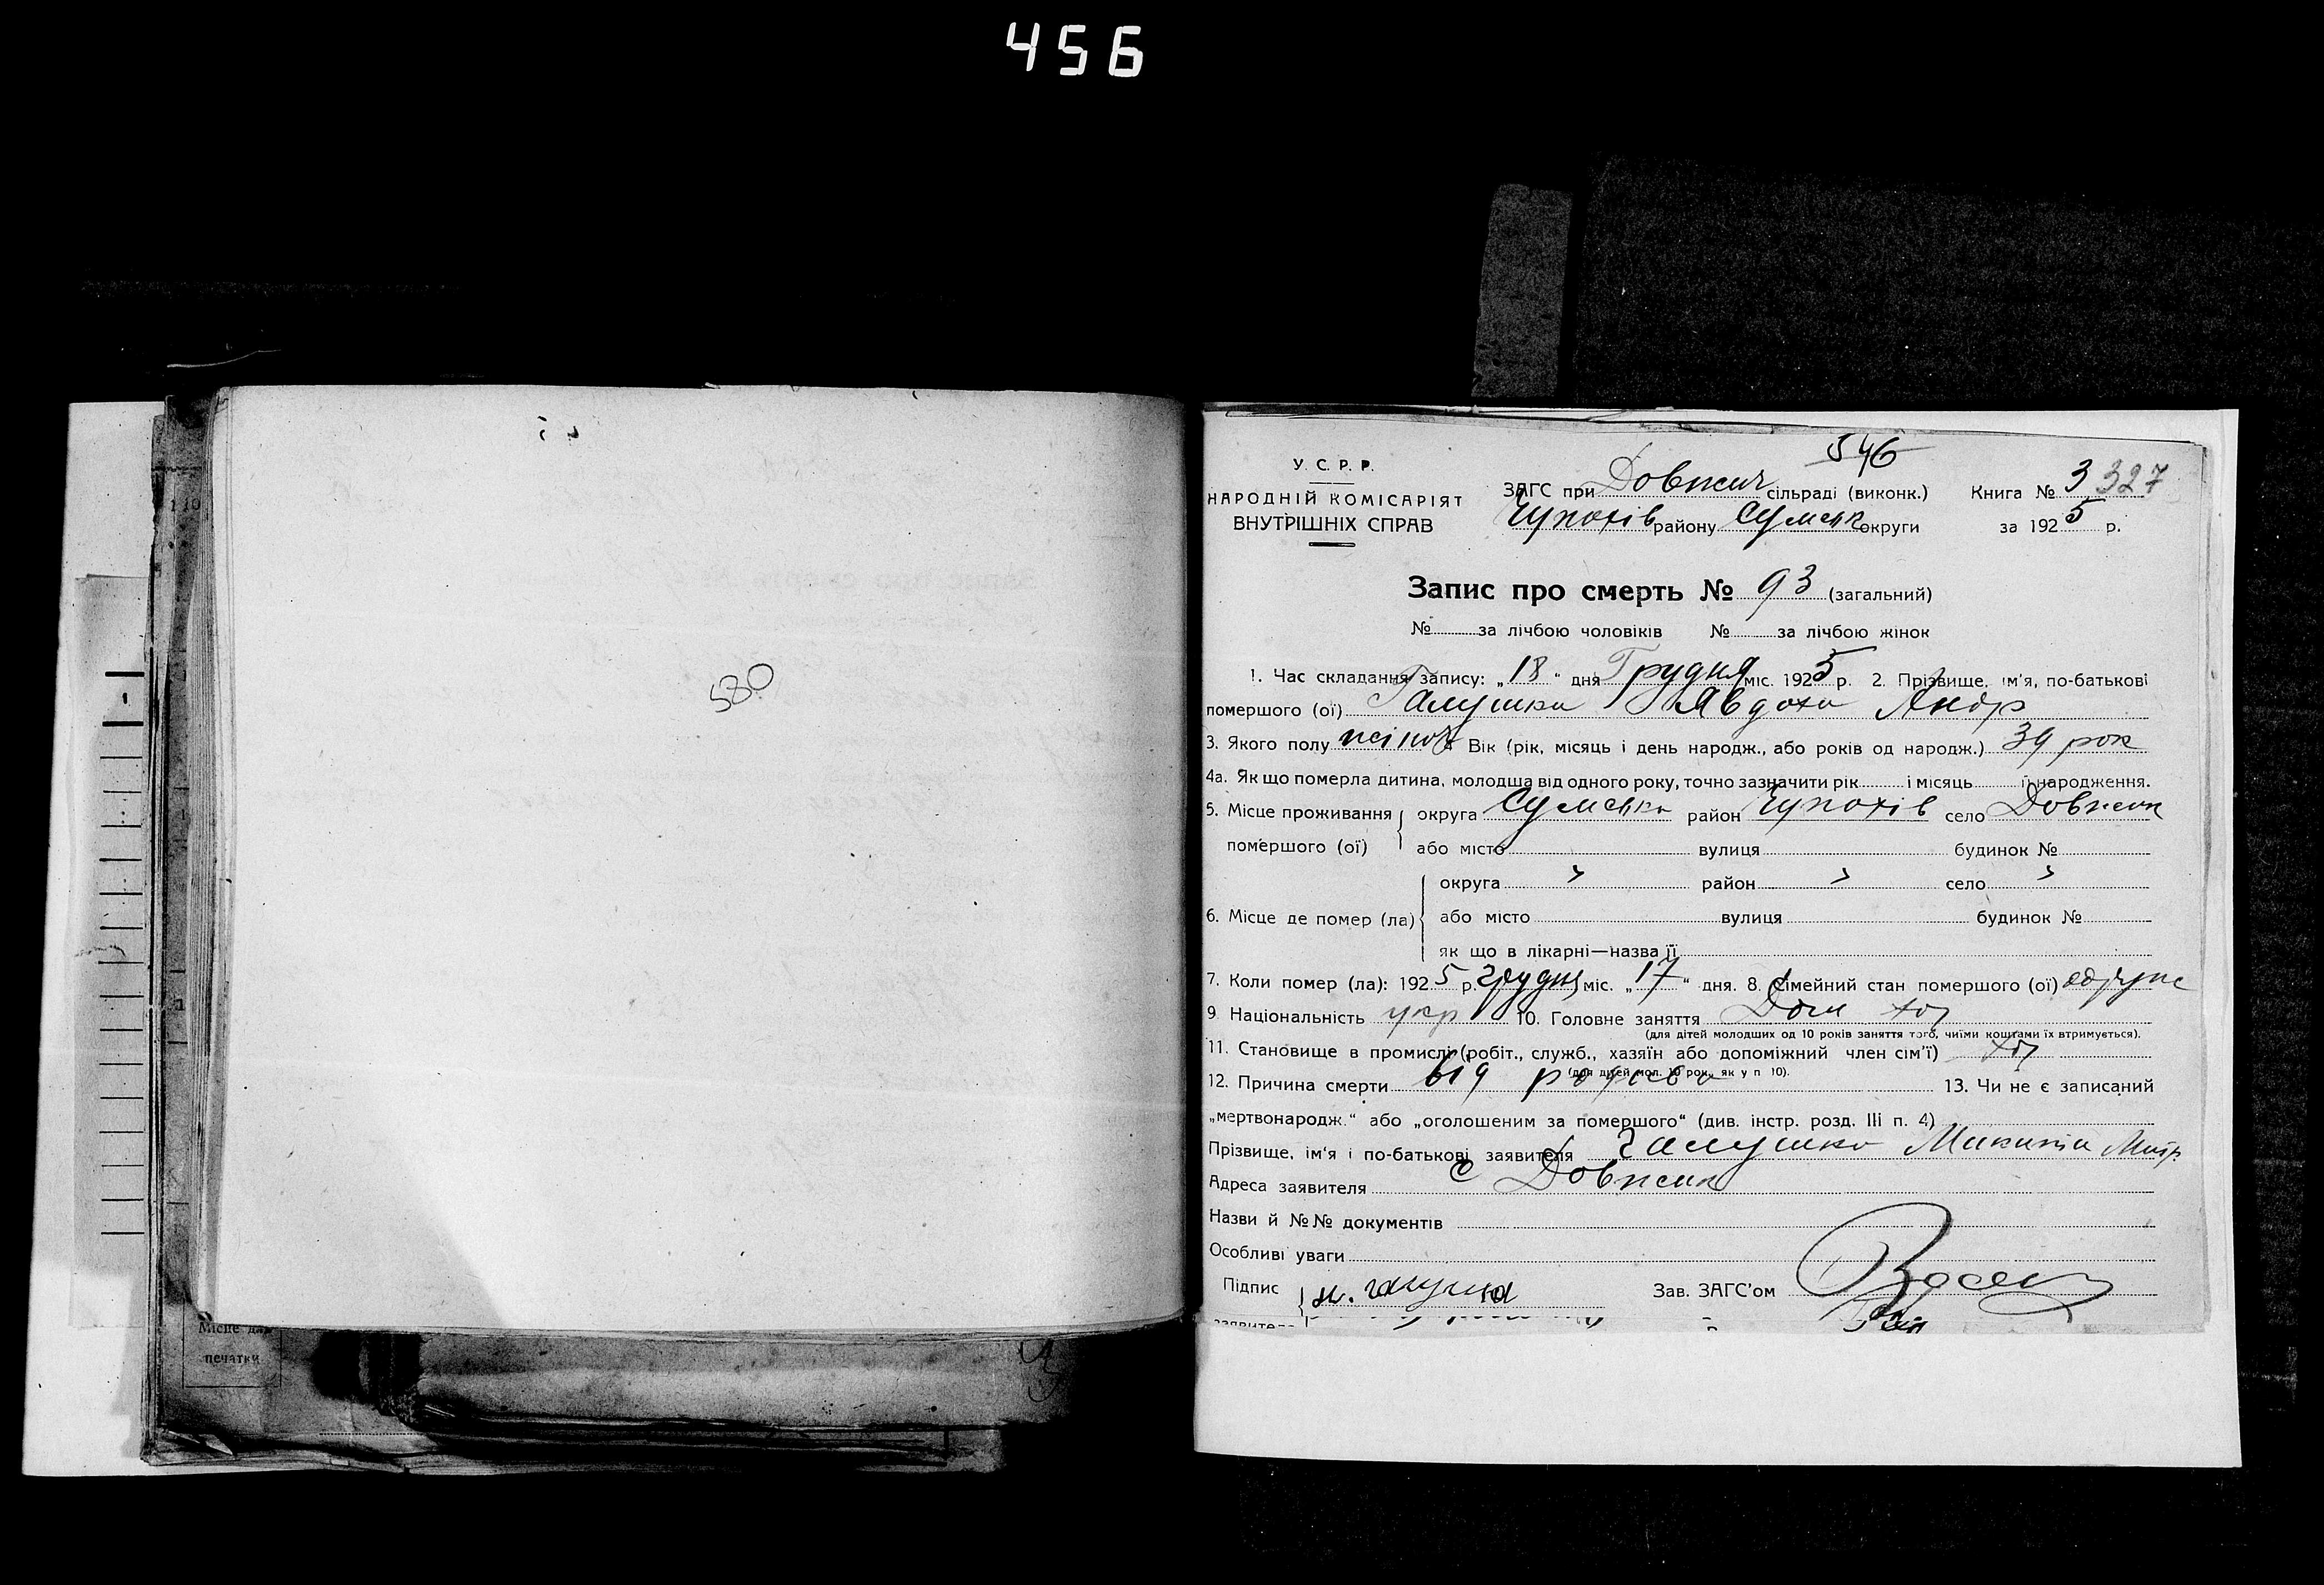 456
580
Місце для
печатки
546
У. С. Р. Р.
НАРОДНІЙ КОМІСАРІЯТ
ВНУТРІШНІХ СПРАВ
ЗАГС при Довжик сільраді (виконк.) Книга № 3 327
Чупахів району Сумськ округи за 1925 р.
Запис про смерть № 93 (загальний)
№ за лічбою чоловіків № за лічбою жінок
1. Час складання запису: „18“ дня Грудня міс. 1925 р. 2. Прізвище, ім'я, по-батькові
помершого (ої) Галушка Явдоха Андр
3. Якого полу жіноч Вік (рік, місяць і день народж., або років од народж.) 39 рок
4а. Як що померла дитина, молодща від одного року, точно зазначити рік і місяць її народження.
5. Місце проживання помершого (ої) округа Сумська район Чупахів село Довжик
або місто вулиця будинок №
6. Місце де помер (ла) округа " район " село "
або місто вулиця будинок №
як що в лікарні—назва її
7. Коли помер (ла): 1925 р. Грудня міс. „17“ дня. 8. Сімейний стан помершого (ої) одруж
9. Національність укр 10. Головне заняття Дом хоз
(для дітей молодших од 10 років заняття того, чиїми коштами їх втримується).
11. Становище в промислі (робіт., служб., хазяїн або допоміжний член сім'ї) хоз
(для дітей мол. 10 рок., як у п 10).
12. Причина смерти від родива 13. Чи не є записаний
„мертвонародж.“ або „оголошеним за помершого“ (див. інстр. розд. III п. 4)
Прізвище, ім'я і по-батькові заявителя Галушка Микита Митр
Адреса заявителя с Довжик
Назви й №№ документів
Особливі уваги
Підпис М. Галушка Зав. ЗАГС'ом
заявителя